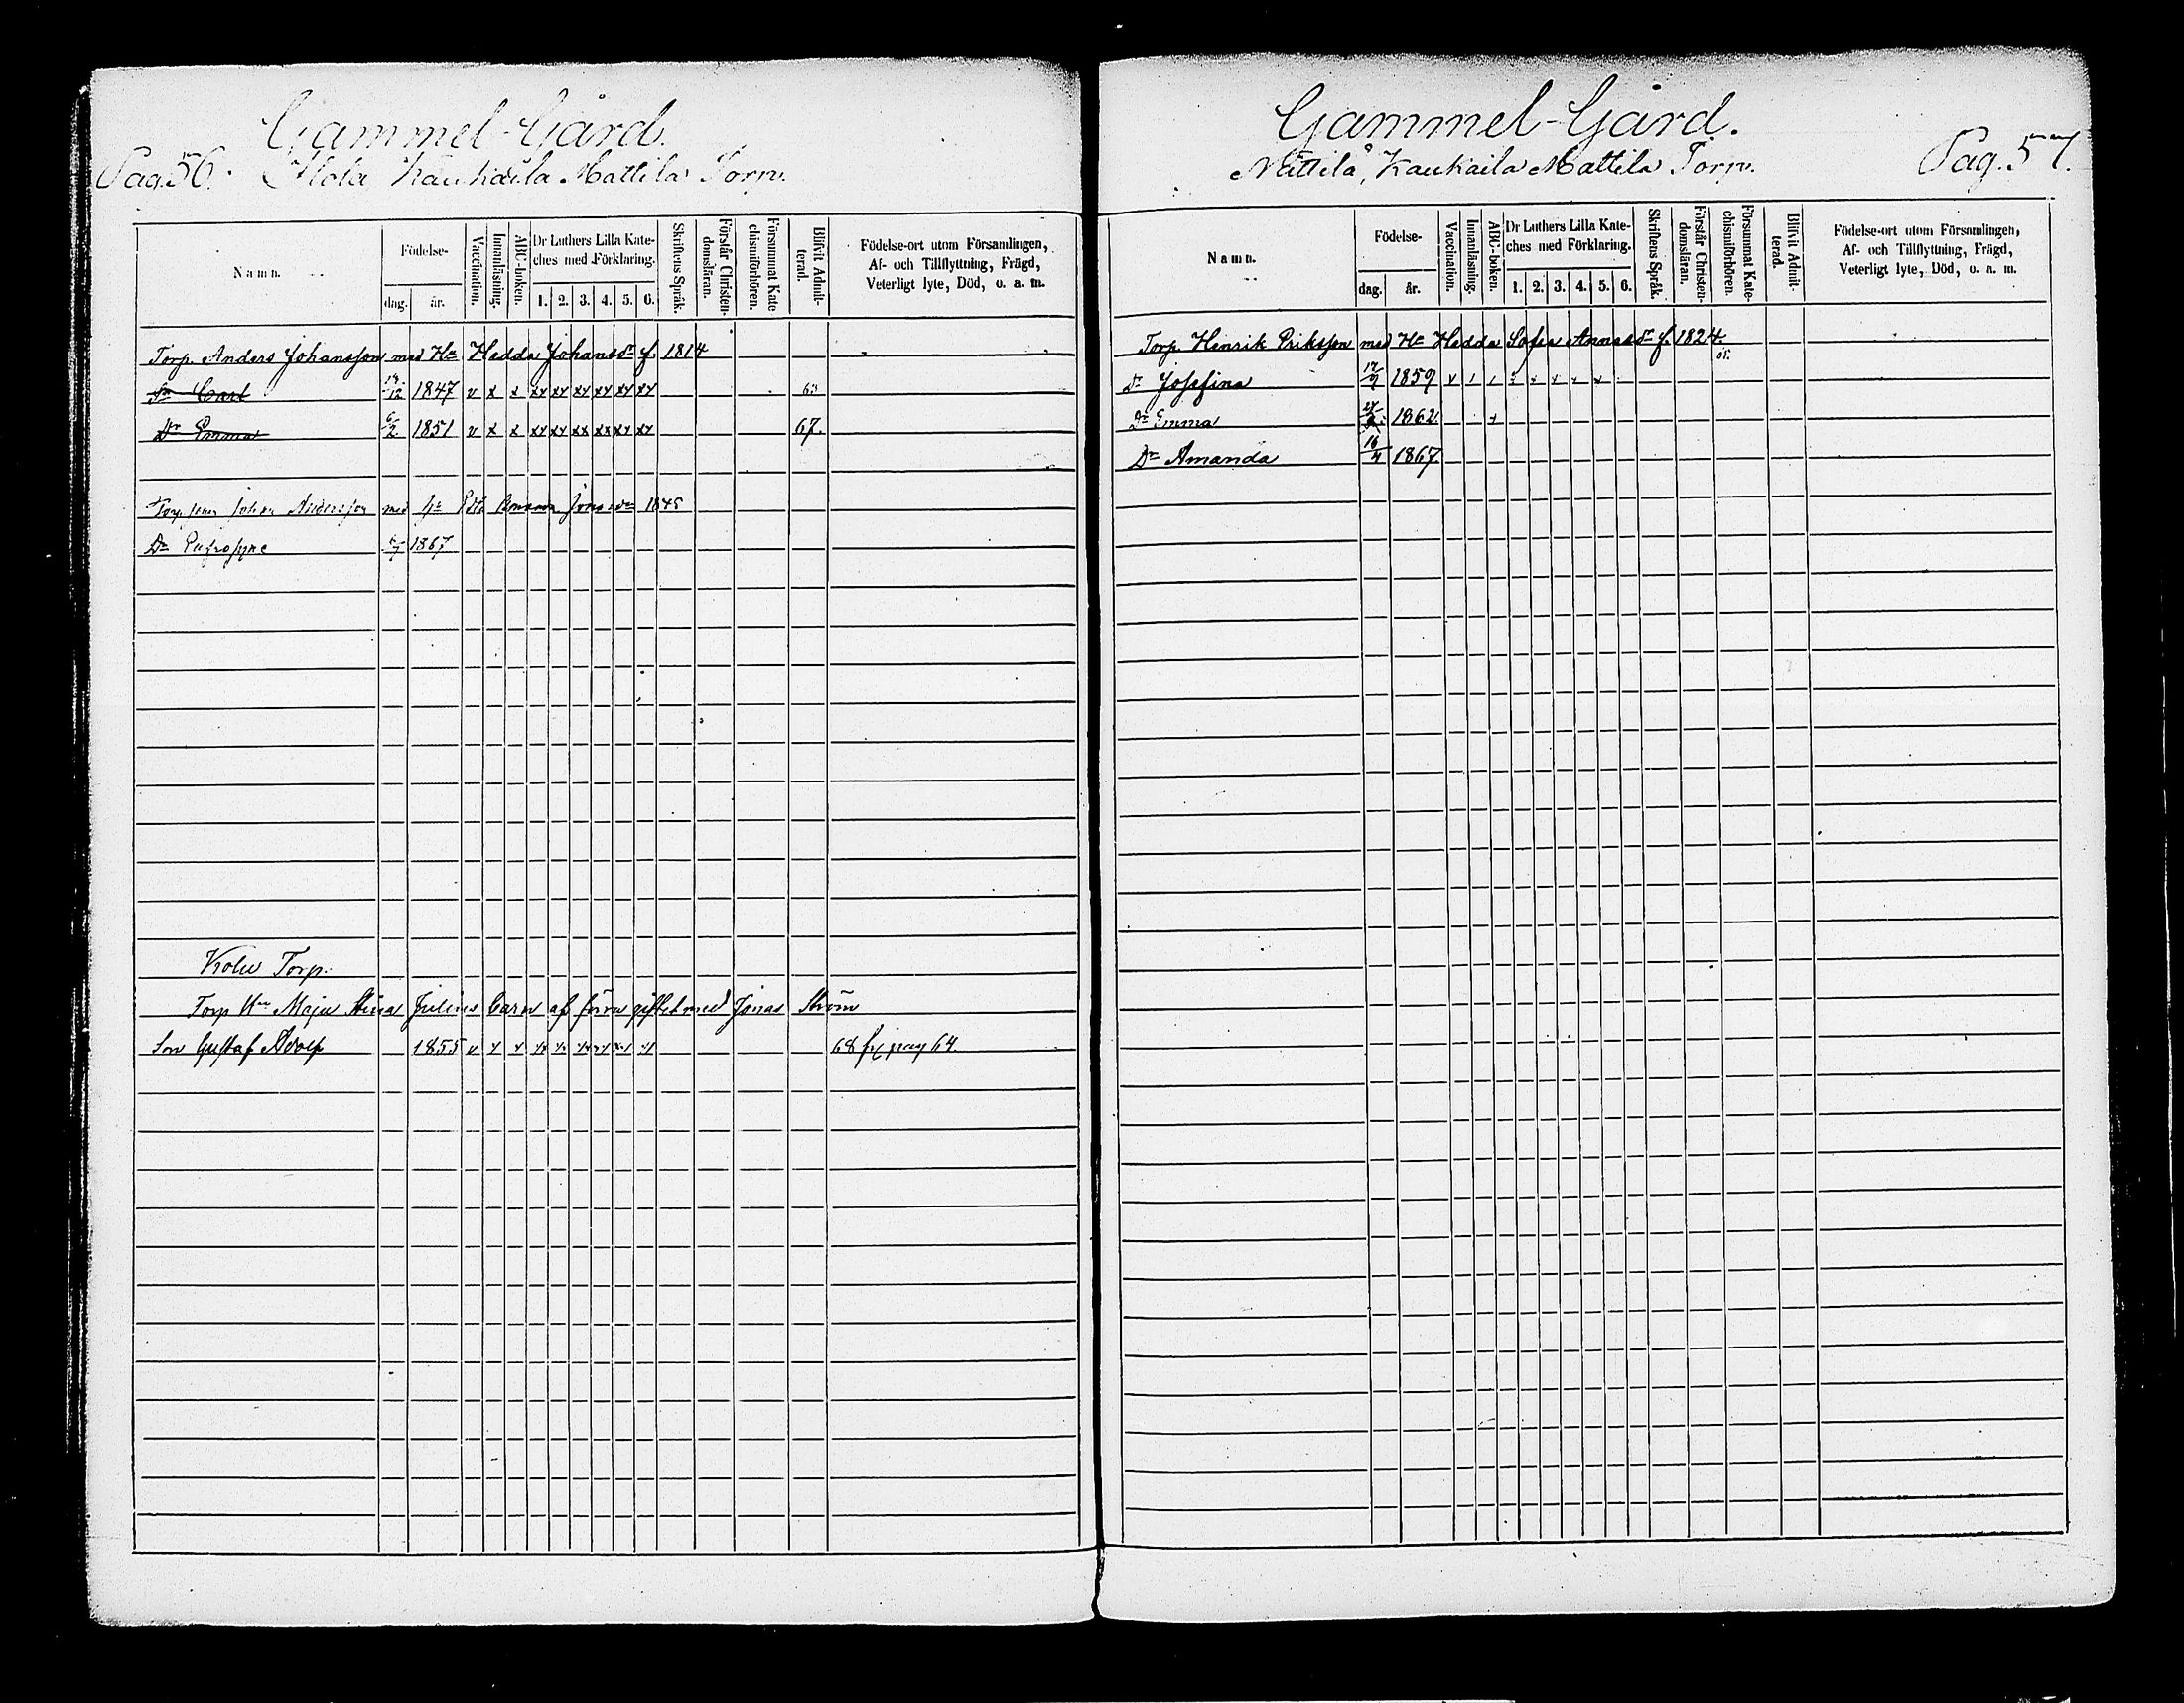 Gammel-Gård.
Pag. 56. Flola Kaukaila Mattila Torp.
Namn.
Födelse-
dag. år.
Vaccination.
Innanläsning.
ABC-boken.
Dr Luthers Lilla Kate-
ches med Förklaring.
1. 2. 3. 4. 5. 6.
Skriftens Språk.
Förstår Christen-
domsläran.
Försummat Kate
chismiförhören.
Blifvit Admit-
terad.
Födelse-ort utom Församlingen,
Af- och Tillflyttning, Frägd,
Veterligt lyte, Död, o. a. m.
Torp. Anders Johansson med Hu Hedda Johansdr f. 1814
Sn Carl 12 1847 v x x xy xy xy xy xy xy 63
Dr Emma 6/2 1851 v x x xy xy xx xx xy xy 67.
Torp. sonen Johan Andersson med hu Emma Jonasdr 1845
Dr Eufrosyne 1867
Torp.
Torp Hu Maja Stina Julius barn af förra giftet med Jonas Ström
Son Gustaf Adolf 1855 v y y 68 pag 64.
Gammel-Gård.
Mattila, Kaukaila Mattila Torp. Pag. 57.
Namn.
Födelse-
dag. år.
Vaccination.
Innanläsning.
ABC-boken.
Dr Luthers Lilla Kate-
ches med Förklaring.
1. 2. 3. 4. 5. 6.
Skriftens Språk.
Förstår Christen-
domsläran.
Försummat Kate-
chismiförhören.
Blifvit Admit-
terad.
Födelse-ort utom Församlingen,
Af- och Tillflyttning, Frägd,
Veterligt lyte, Död, o. a. m.
Torp. Henrik Eriksson med Hu Hedda Sofia Annasdr f. 1824.
Dr Josefina 17/9 1859
Dr Emma 1862
Dr Amanda 16/4 1867